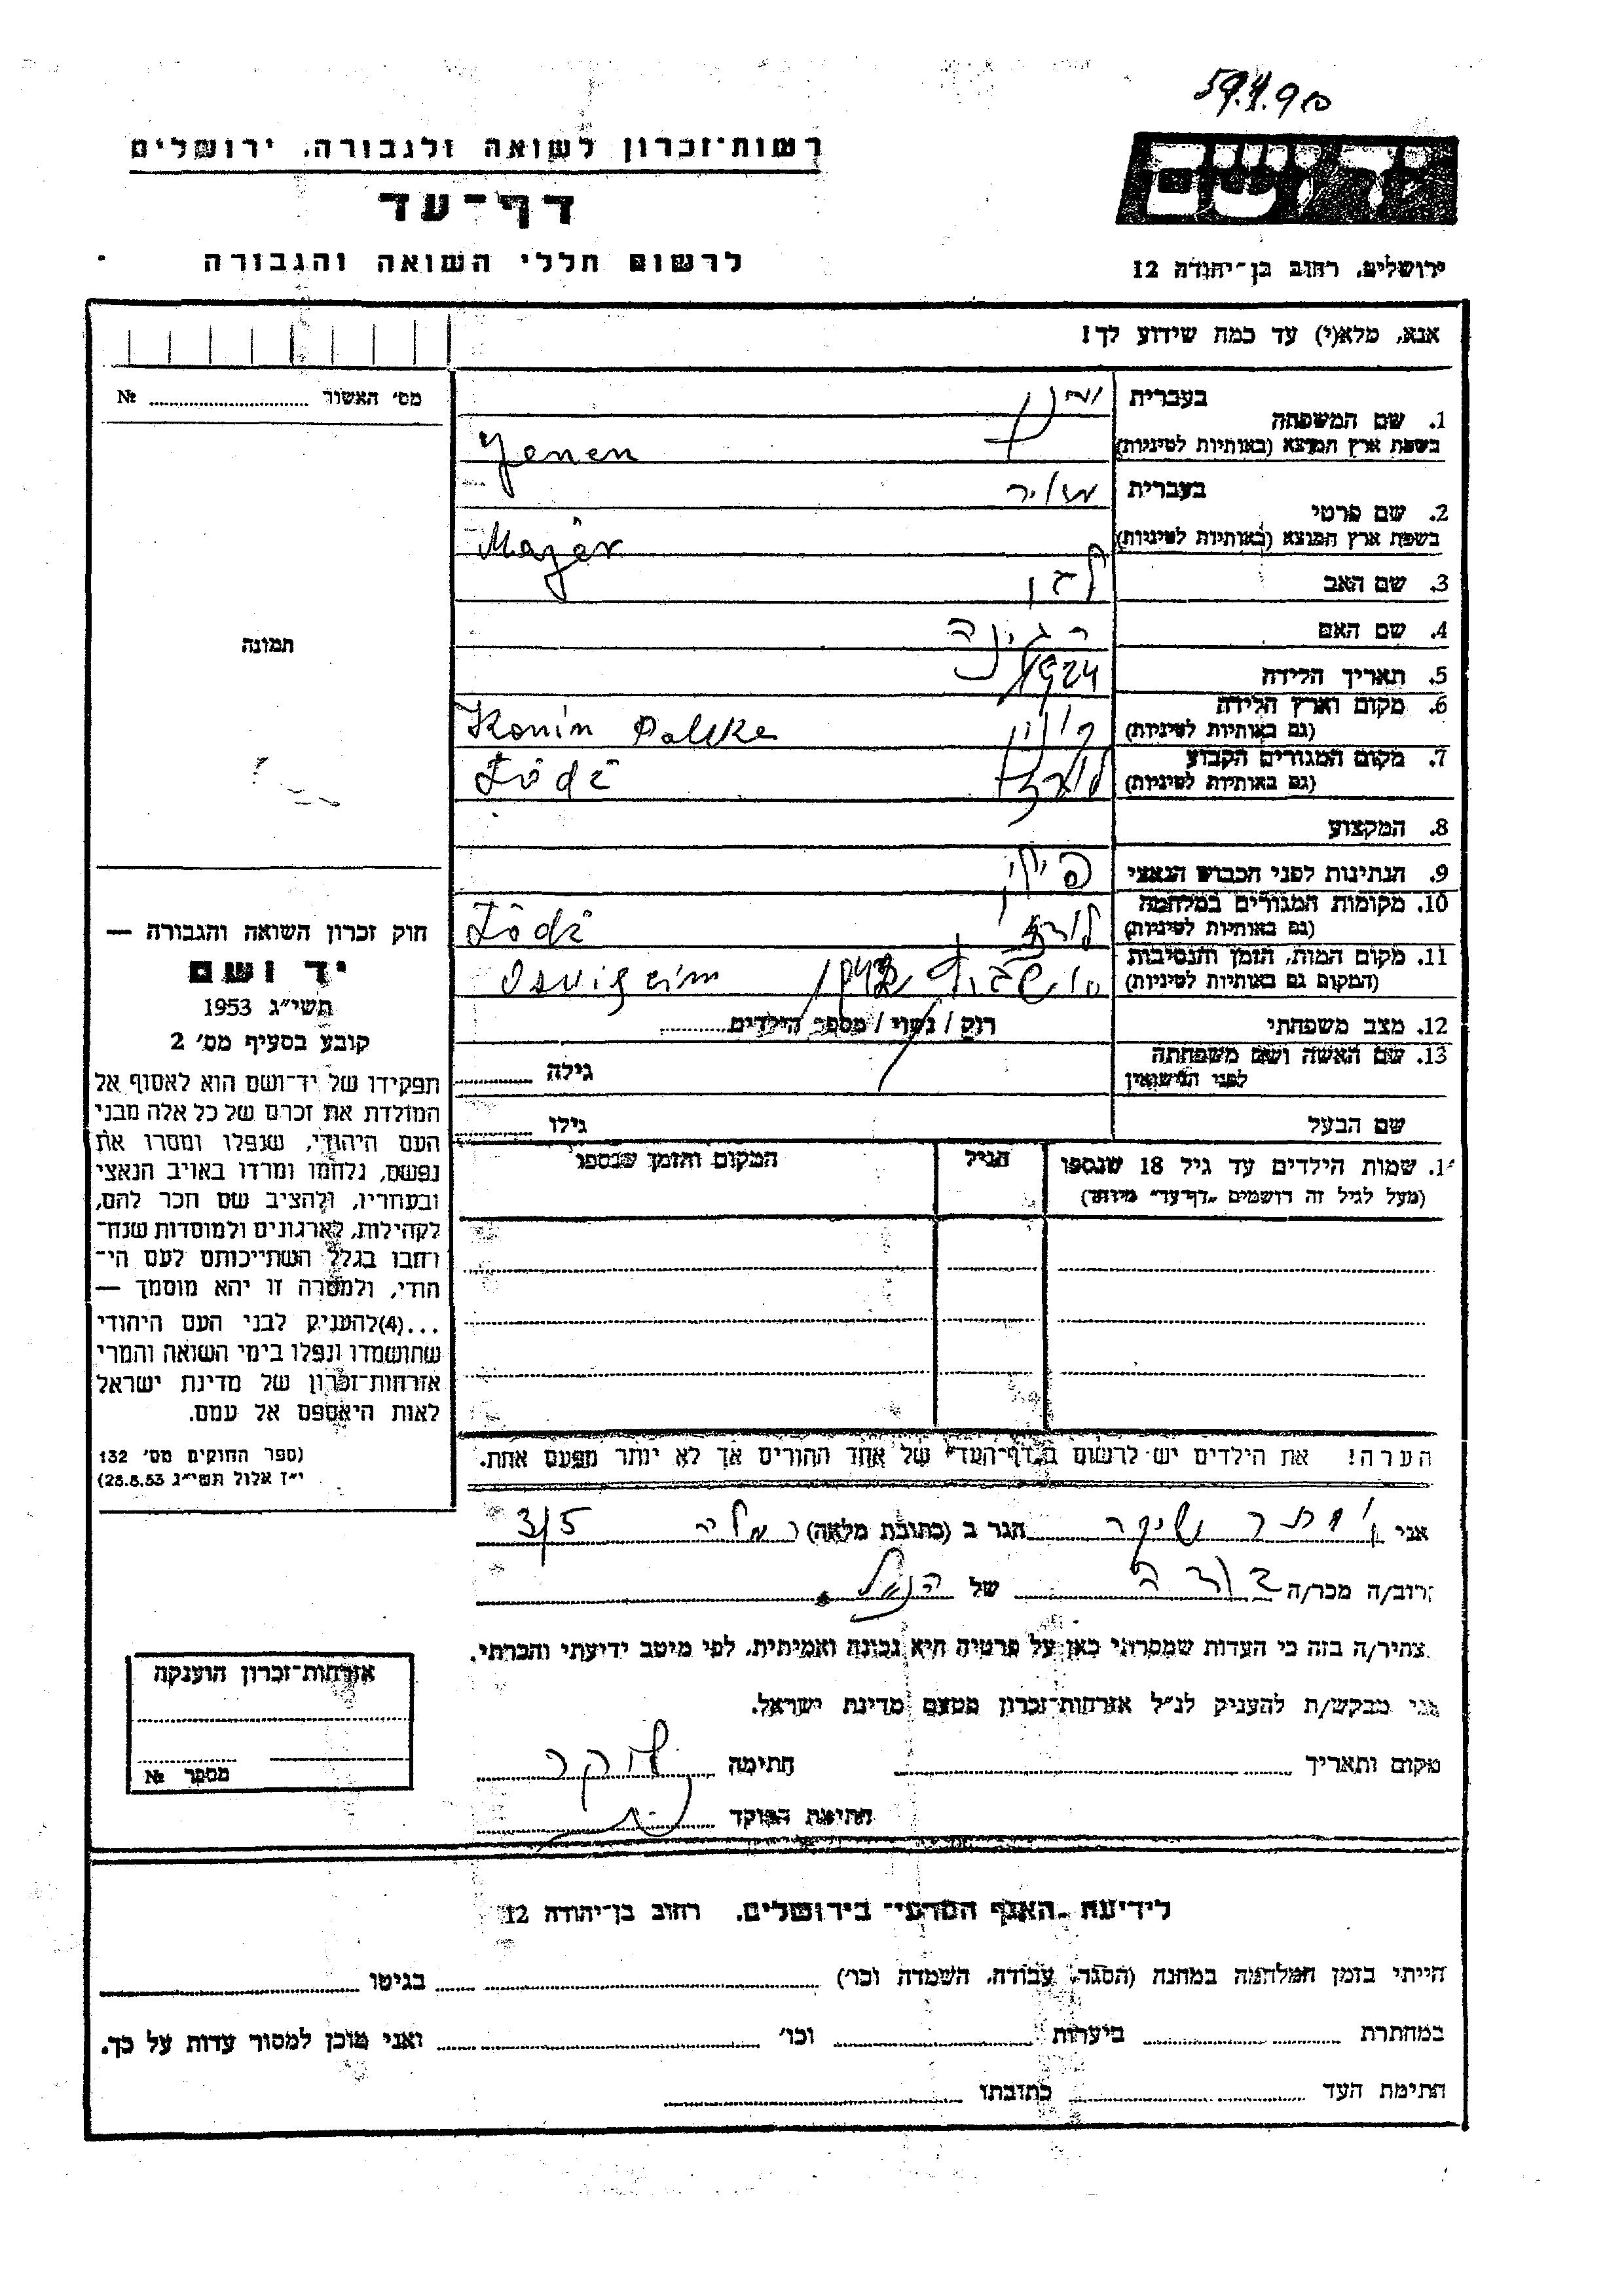 רשות־זכרון לשואה ולגבורה, ירושלים
דף־עד
לרשום חללי השואה והגבורה
יד ושם
ירושלים, רחוב בן־יהודה 12
אנא, מלא(י) עד כמה שידוע לך!
מס׳ האשור № 
תמונה
חוק זכרון השואה והגבורה —
יד ושם
תשי״ג 1953
קובע בסעיף מס׳ 2
תפקידו של יד־ושם הוא לאסוף אל
המולדת את זכרם של כל אלה מבני
העם היהודי, שנפלו ומסרו את
נפשם, נלחמו ומרדו באויב הנאצי
ובעוזריו, ולהציב שם וזכר להם,
לקהילות, לארגונים ולמוסדות שנח־
רבו בגלל השתייכותם לעם הי־
הודי, ולמטרה זו יהא מוסמך —
...(4)להעניק לבני העם היהודי
שהושמדו ונפלו בימי השואה והמרי
אזרחות־זכרון של מדינת ישראל
לאות היאספם אל עמם.
(ספר החוקים מס׳ 132
י״ז אלול תשי״ג 28.8.53)
1. שם המשפחה בעברית
בשפת ארץ המוצא (באותיות לטיניות) Yenen
2. שם פרטי בעברית מאיר
בשפת ארץ המוצא (באותיות לטיניות) Majer
3. שם האב לבן
4. שם האם רגינה
5. תאריך הלידה 1924
6. מקום וארץ הלידה
(גם באותיות לטיניות) קונין Konin
7. מקום המגורים הקבוע
(גם באותיות לטיניות) לודז Łódź
8. המקצוע
9. הנתינות לפני הכבוש הנאצי
10. מקומות המגורים במלחמה
(גם באותיות לטיניות) לודז Łódź
11. מקום המות, הזמן והנסיבות
(המקום גם באותיות לטיניות)
12. מצב משפחתי רוק / נשוי / מספר הילדים
13. שם האשה ושם משפחתה
לפני הנישואין גילה
שם הבעל גילו
1. שמות הילדים עד גיל 18 שנספו הגיל המקום והזמן שנספו
(מעל לגיל זה רושמים „דף־עד״ מיוחד)
הערה! את הילדים יש לרשום ב„דף־העד״ של אחד ההורים אך לא יותר מפעם אחת.
אני הגר ב (כתובת מלאה) רמלה 3/5
רוב/ה מכר/ה דודה של הנ״ל
צהיר/ה בזה כי העדות שמסרתי כאן על פרטיה היא נכונה ואמיתית, לפי מיטב ידיעתי והכרתי.
אני מבקש/ת להעניק לנ״ל אזרחות־זכרון מטעם מדינת ישראל.
מקום ותאריך חתימה
חתימת הפוקד
אזרחות־זכרון הוענקה
מספר №
לידיעת האגף המדעי בירושלים, רחוב בן־יהודה 12
הייתי בזמן המלחמה במחנה (הסגר, עבודה, השמדה וכו׳) בגיטו
במחתרת ביערות וכו׳ ואני מוכן למסור עדות על כך.
חתימת העד כתובתו